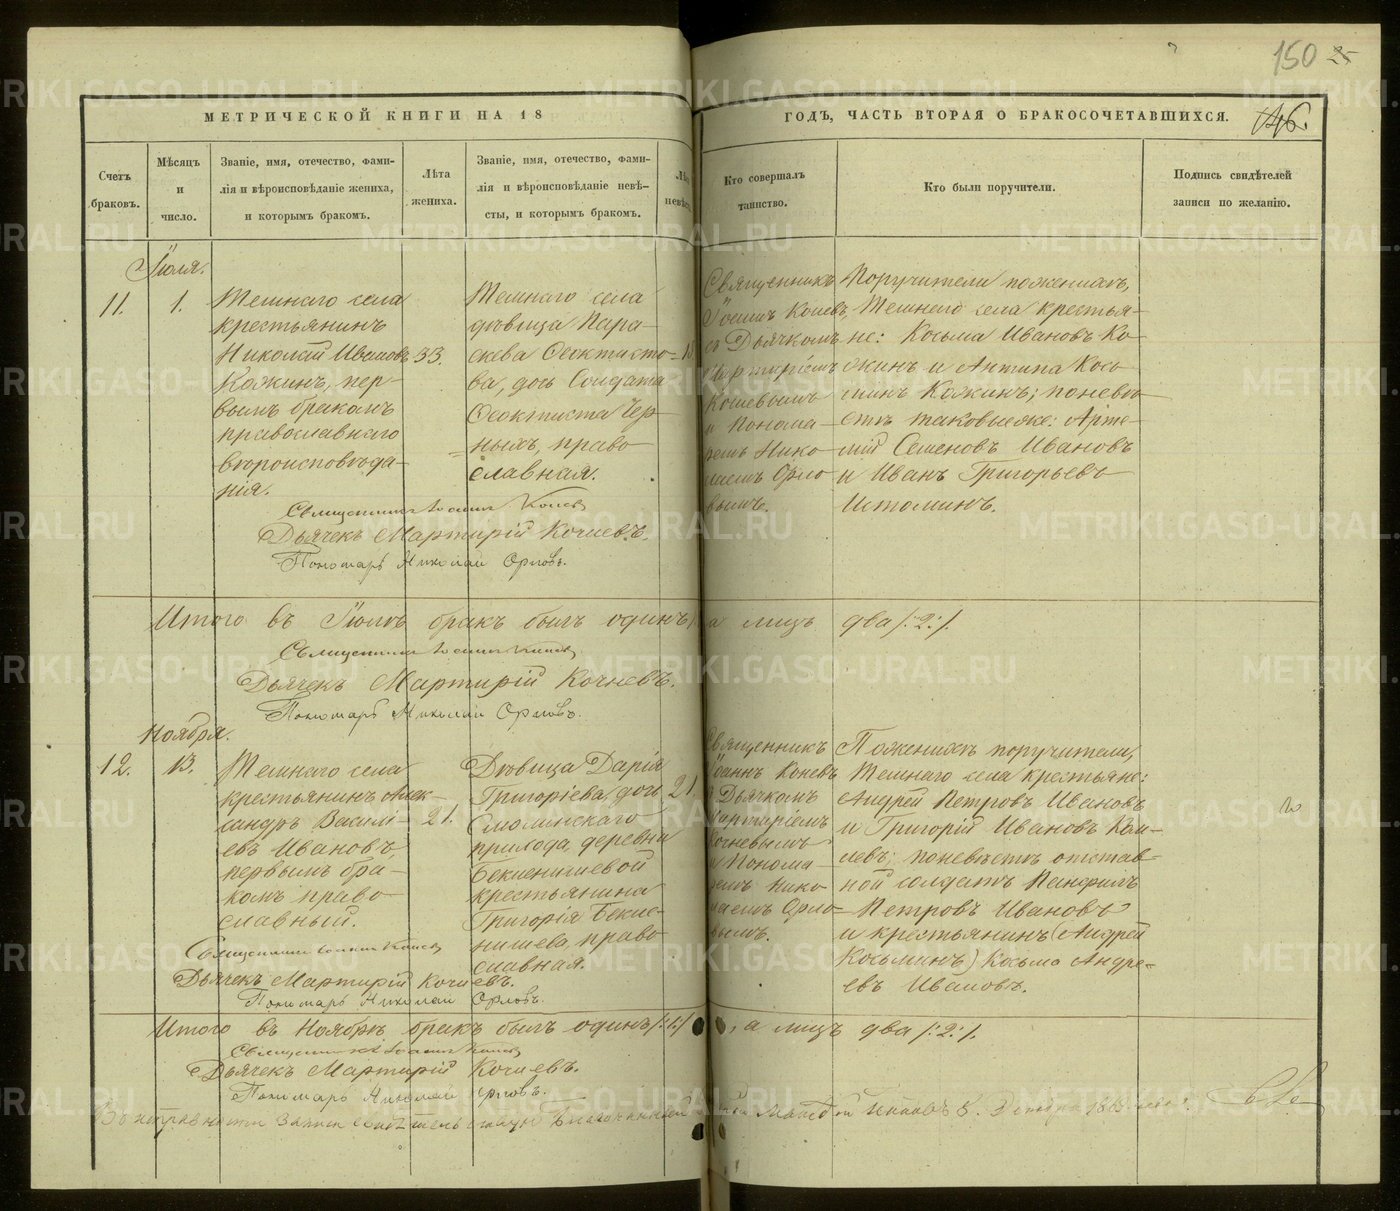 150
МЕТРИЧЕСКОЙ КНИГИ НА 18
ГОДЪ, ЧАСТЬ ВТОРАЯ О БРАКОСОЧЕТАВШИХСЯ.
46.
Счетъ
браковъ.
Мѣсяцъ
и
число.
Званіе, имя, отечество, фами-
лія и вѣроисповѣданіе жениха,
и которымъ бракомъ.
Лѣта
жениха.
Званіе, имя, отечество, фами-
лія и вѣроисповѣданіе невѣ-
сты, и которымъ бракомъ.
Кто совершалъ
таинство.
Кто были поручители.
Подпись свидѣтелей
записи по желанію.
Іюля.
11.
1.
Темнаго села
крестьянинъ
Николай Ивановъ
Кожинъ, пер-
вымъ бракомъ
православнаго
вѣроисповѣда-
нія.
33.
Темнаго села
дѣвица Пара-
скева Ѳеоктисто-
ва, дочь Солдата
Ѳеоктиста Чер-
ныхъ, право-
славная.
Священникъ
Іоаннъ
съ Дьячкомъ
и Понома-
ремъ Нико-
лаемъ Орло-
вымъ.
Поручители пожениху,
Темнаго села крестья-
не: Косьма Ивановъ Ко-
жинъ и Антипа Кось-
минъ Кожинъ; поневѣ-
стѣ таковые же: Арте-
мій Семеновъ Ивановъ
и Иванъ Григорьевъ
Истоминъ.
Священникъ Іоаннъ
Дьячекъ Мартирій Кочневъ.
Пономарь Николай Орловъ.
Итого въ Іюлѣ бракъ былъ одинъ, а лицъ два /:2:/.
Священникъ Іоаннъ
Дьячекъ Мартирій Кочневъ.
Пономарь Николай Орловъ.
Ноября.
12.
13.
Темнаго села
крестьянинъ Алек-
сандръ Василі-
евъ Ивановъ,
первымъ бра-
комъ право-
славный.
21.
Дѣвица Дарія
Григоріева, дочь
Смолинскаго
прихода, деревни
Бекленищевой
крестьянина
Григорія Бекле-
нищева, право-
славная.
21.
Священникъ
Іоаннъ
съ Дьячкомъ
Мартиріемъ
Кочневымъ
и Понома-
ремъ Нико-
лаемъ Орло-
вымъ.
Пожениху поручители,
Темнаго села крестьяне:
Андрей Петровъ Ивановъ
и Григорій Ивановъ
поневѣстѣ отстав-
ной солдатъ Панфилъ
Петровъ Ивановъ
и крестьянинъ (Андрей
Косьминъ) Косьма Андре-
евъ Ивановъ.
Священникъ Іоаннъ
Дьячекъ Мартирій Кочневъ.
Пономарь Николай Орловъ.
Итого въ Ноябрѣ бракъ былъ одинъ /:1:/, а лицъ два /:2:/.
Священникъ Іоаннъ
Дьячекъ Мартирій Кочневъ.
Пономарь Николай Орловъ.
METRIKI.GASO-URAL.RU